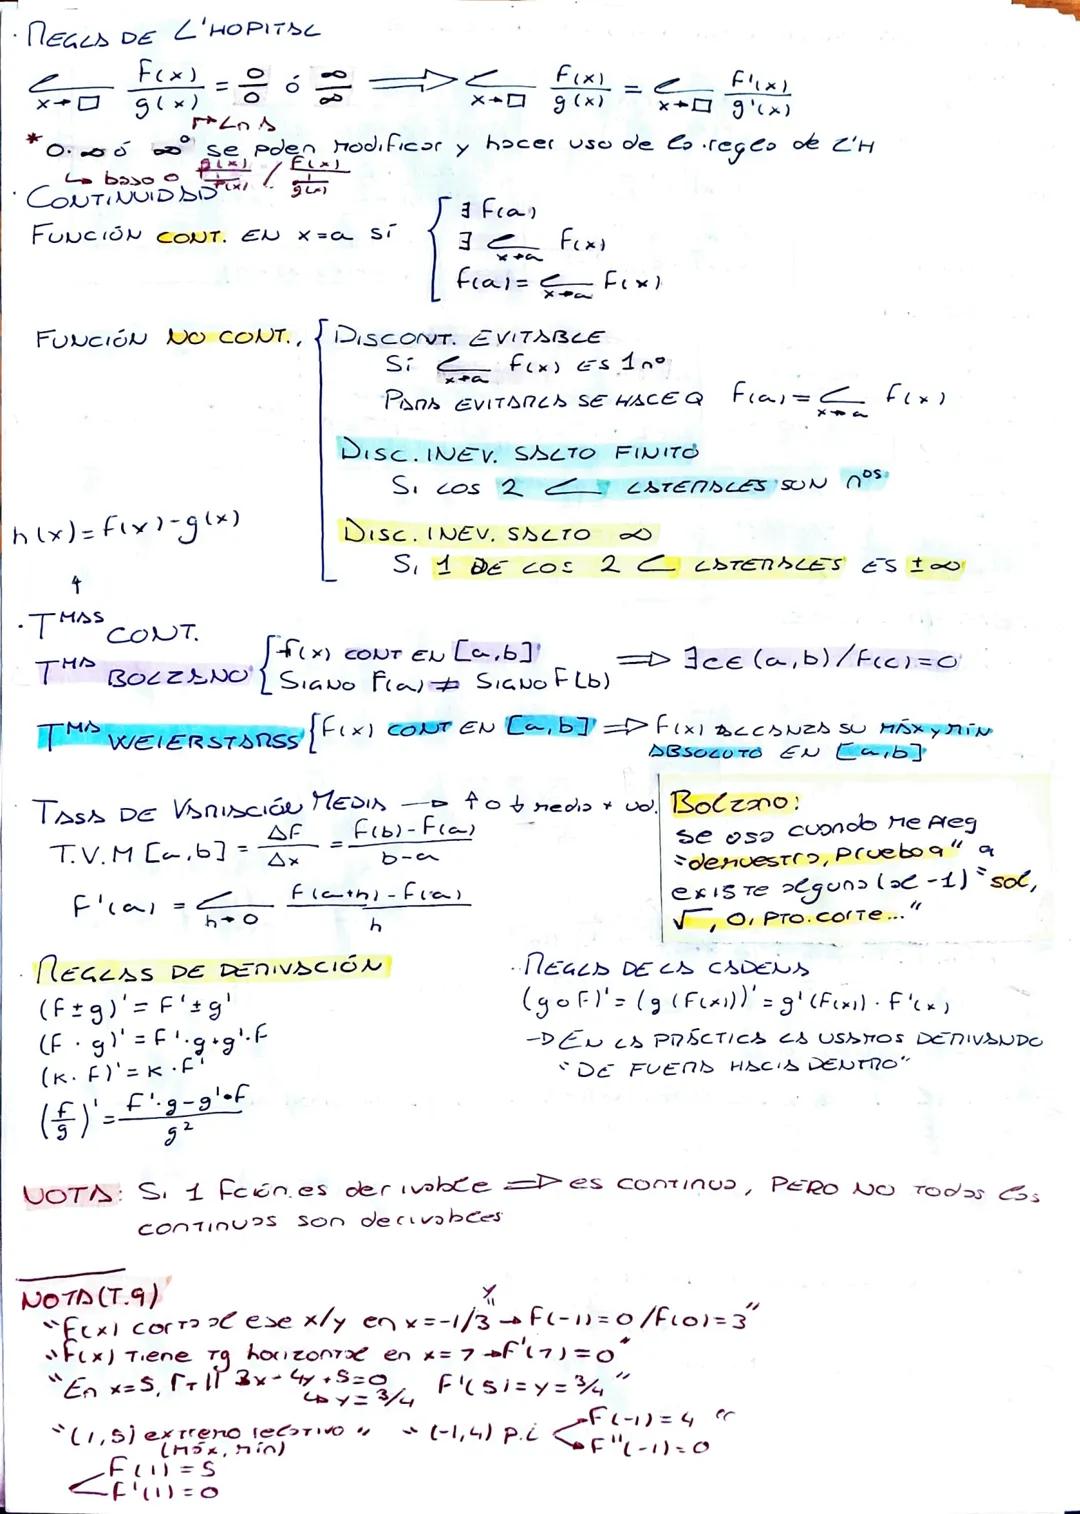 · REGLA DE L'HOPITAL
L x→□ f(x)/g(x) = 0/0 ó ∞/∞ ⟹ L x→□ f(x)/g(x) = L x→□ f'(x)/g'(x)
↱ Ln A
* 0·∞ ó ∞⁰ se pden modificar y hacer uso de la regla de L'H
↳ baso o g(x)/(1/f(x)) / f(x)/(1/g(x))
· CONTINUIDAD
FUNCIÓN CONT. EN x=a Sí
∃ f(a)
∃ L x→a f(x)
f(a) = L x→a f(x)
FUNCIÓN NO CONT.,
DISCONT. EVITABLE
Si L x→a f(x) ES 1 nº
PARA EVITARLA SE HACE Q f(a) = L x→a f(x)
DISC. INEV. SALTO FINITO
Si LOS 2 L LATERALES SON nos
DISC. INEV. SALTO ∞
Si 1 DE LOS 2 L LATERALES ES ±∞
h(x) = f(x) - g(x)
↑
· TMAS CONT.
TMA BOLZANO { f(x) CONT EN [a,b] ⟹ ∃ c∈(a,b) / f(c)=0
SIGNO f(a) ≠ SIGNO f(b)
TMA WEIERSTARSS { f(x) CONT EN [a,b] ⟹ f(x) ALCANZA SU MÁX y MÍN
ABSOLUTO EN [a,b]
TASA DE VARIACIÓN MEDIA → ↑ o ↓ media x ud.
T.V.M [a,b] = ΔF/Δx = f(b)-f(a)/b-a
f'(a) = L h→0 f(a+h)-f(a)/h
Bolzano:
se usa cuando me preg
"demuestra, prueba q" q
existe alguna (al -1) "sol,
√, 0, PTO. corte..."
· REGLAS DE DERIVACIÓN
(f±g)' = f'±g'
(f·g)' = f'·g+g'·f
(K·f)' = K·f'
(f/g)' = f'·g-g'·f/g²
· REGLA DE LA CADENA
(g∘f)' = (g(f(x)))' = g'(f(x))·f'(x)
→ EN LA PRÁCTICA LA USAMOS DERIVANDO
"DE FUERA HACIA DENTRO"
NOTA: Si 1 fción es derivable ⟹ es continua, PERO NO todas las
continuas son derivables
NOTA (T.9)
"f(x) corta al eje x/y en x=-1/3 → f(-1)=0/f(0)=3"
"f(x) Tiene Tg horizontal en x=7 → f'(7)=0"
"En x=5, rT || 3x-4y+5=0 f'(5)=y=3/4"
↳ y=3/4
"(1,5) extremo relativo" "(-1,4) p.i f(-1)=4"
(máx, mín) f''(-1)=0
f(1)=5
f'(1)=0